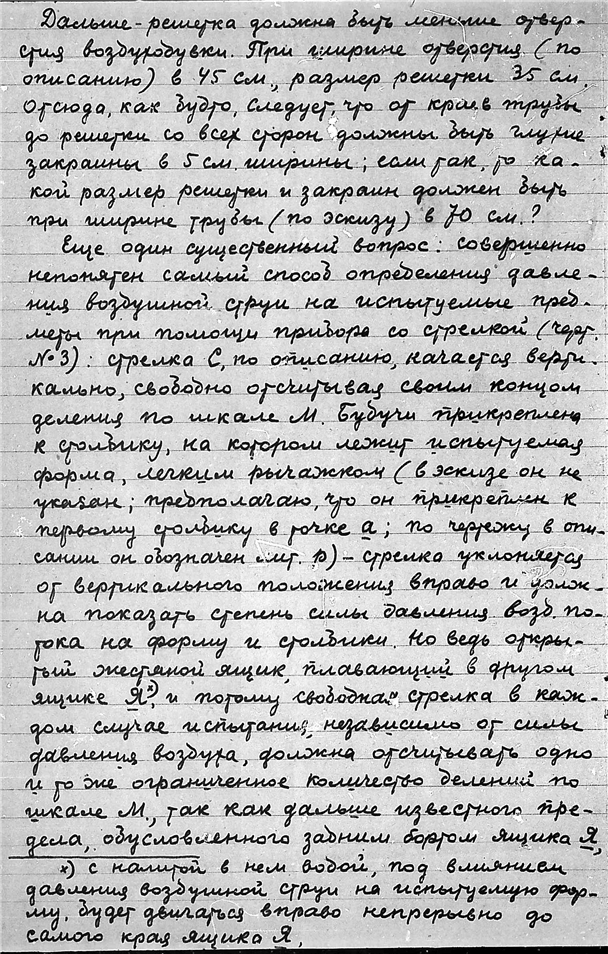 Дальше - решетка должна быть меньше отвер-
стия воздуходувки. При ширине отверстия (по
описанию) в 45 см., размер решетки 35 см
Отсюда, как будто, следует, что от краев трубы
до решетки со всех сторон должны быть глухие
закраины в 5 см ширины; если так, то ка-
кой размер решетки и закраин должен быть
при ширине трубы (по эскизу) в 70 см.?
Еще один существенный вопрос: совершенно
непонятен самый способ определения давле-
ния воздушной струи на испытуемые пред-
меты при помощи прибора со стрелкой (черт.
№3): стрелка С, по описанию, качается верти-
кально, свободно отсчитывая своим концом
деления по шкале М. Будучи прикреплена
к столбику, на котором лежит испытуемая
форма, легким рычажком (в эскизе он не
указан; предполагаю, что он прикреплен к
первому столбику в точке а; по чертежу в опи-
сании он обозначен лит. р) - стрелка уклоняется
от вертикального положения вправо и долж-
на показать степень силы давления возд. по-
тока на форму и столбики. Но ведь откры-
тый жестяной ящик, плавающий в другом
ящике Я х), и потому свободная стрелка в каж-
дом случае испытания, независимо от силы
давления воздуха, должна отсчитывать одно
и то же ограниченное количество делений по
шкале М., так как дальше известного пре-
дела, обусловленного задним бортом ящика Я,
х) с налитой в нем водой, под влиянием
давления воздушной струи на испытуемую фор-
му, будет двигаться вправо непрерывно до
самого края ящика Я,